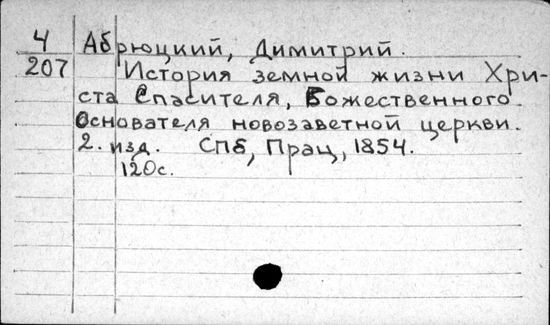 4 Абрюцкий, Димитрий.
207 История земной жизни Хри-
ста Спасителя, Божественного
Основателя новозаветной церкви.
2. изд. СПб, Прац, 1854.
120с.